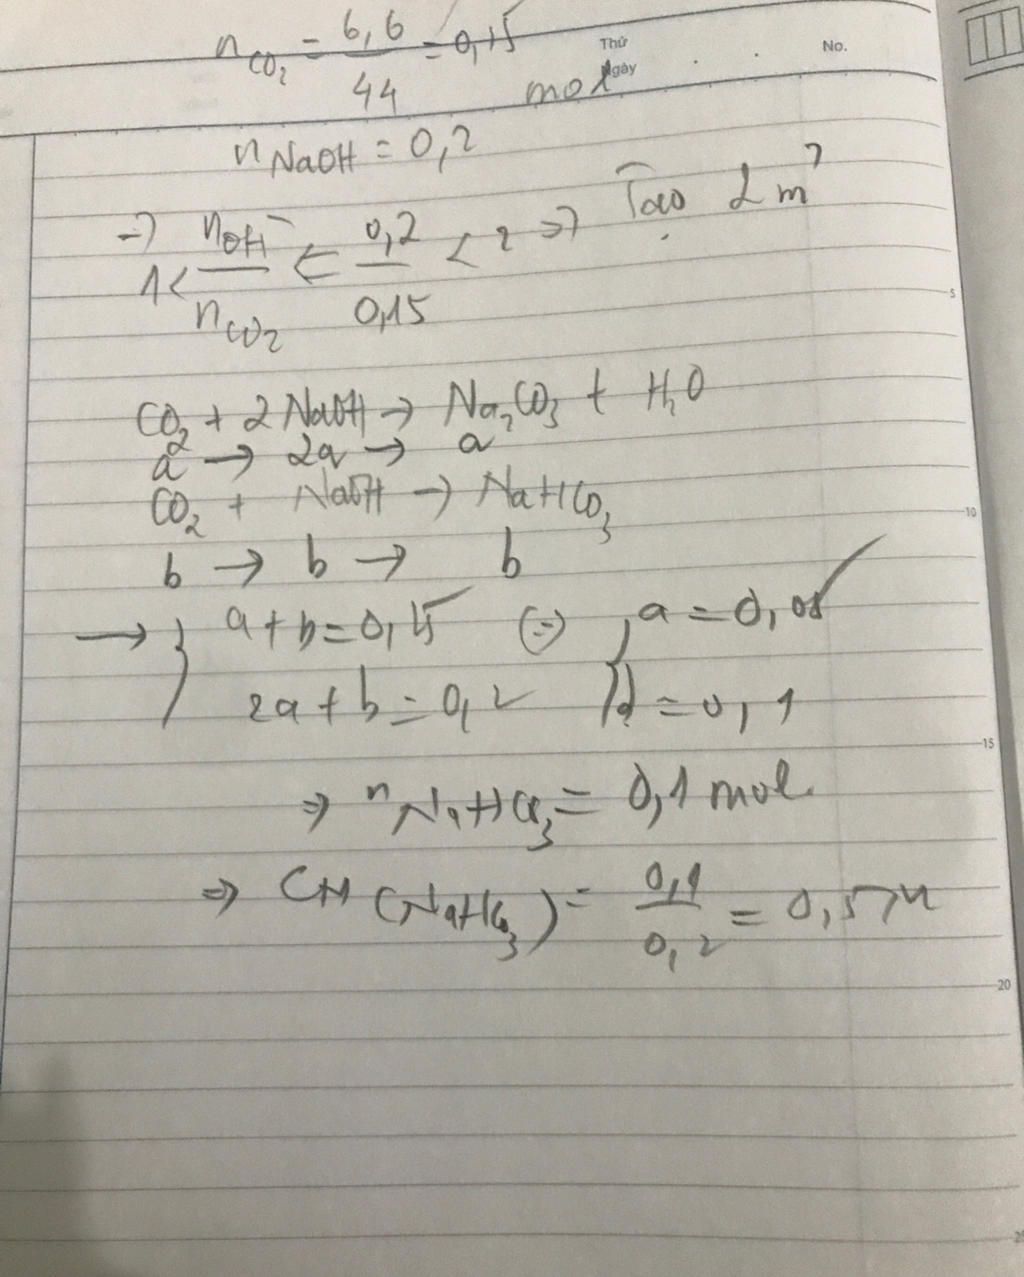 n CO₂ = 6,6 / 44 = 0,15 mol
Thứ
Ngày
No.
n NaOH = 0,2
=> 1 < nOH⁻ / nCO₂ = 0,2 / 0,15 < 2 => Tạo 2 m'
5
CO₂ + 2 NaOH → Na₂CO₃ + H₂O
a → 2a → a
CO₂ + NaOH → NaHCO₃
10
b → b → b
→ { a + b = 0,15 (=) { a = 0,05
2a + b = 0,2 b = 0,1
15
=> n NaHCO₃ = 0,1 mol
=> CM (NaHCO₃) = 0,1 / 0,2 = 0,5 M
20